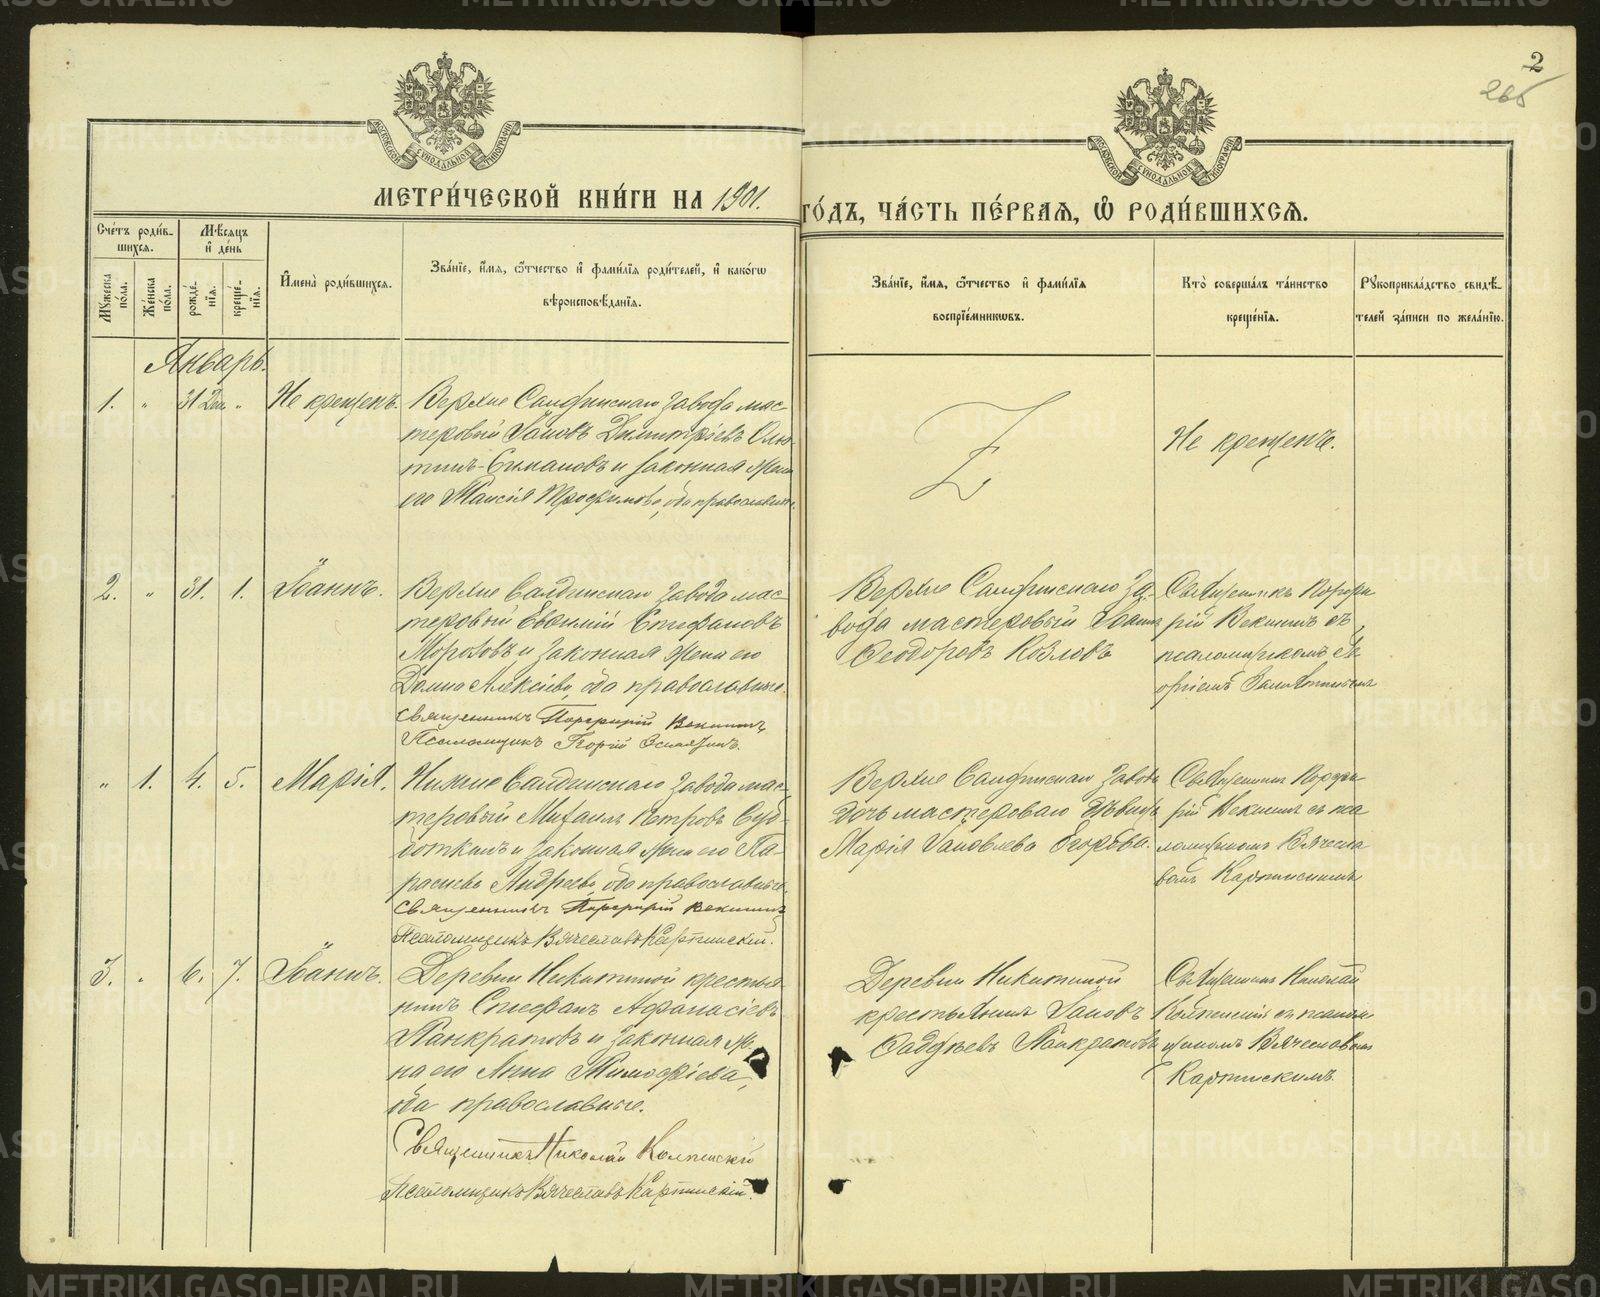 2
265
МЕТРИ́ЧЕСКОЙ КНИ́ГИ НА 1901.
ГО́ДЪ, ЧА́СТЬ ПЕ́РВАЯ, Ѡ҆ РОДИ́ВШИХСЯ.
Сче́тъ роди́в-
шихся.
Мѣ́сяцъ
и҆ де́нь
Мꙋ́жеска по́ла.
Же́нска по́ла.
рожде́нїя.
креще́нїя.
И҆мена̀ роди́вшихся.
Зва́нїе, и҆́мя, ѻ҆́тчество и҆ фами́лїя роди́телей, и҆ како́гѡ
вѣроисповѣ́данїя.
Зва́нїе, и҆́мя, ѻ҆́тчество и҆ фами́лїя
воспрїе́мникѡвъ.
Кто̀ соверша́лъ та́инство
креще́нїя.
Рꙋкоприкла́дство свидѣ́-
телей за́писи по жела́нїю.
Январь.
1. " 31 Дек " Не крещенъ.
Верхне Салдинскаго завода мас-
теровый Іаковъ Димитріевъ
и законная жена
его Таисія Трофимова, оба православные.
Не крещенъ.
2. " 31. 1. Іоаннъ.
Верхне Салдинскаго завода мас-
теровый Евѳимій Стефановъ
Морозовъ и законная жена его
Домна Алексіева, оба православные.
Священникъ Порфирій Векшинъ
Псаломщикъ Георгій
Верхне Салдинскаго за-
вода мастеровый Іоаннъ
Ѳеодоровъ Козловъ
Священникъ Порфи-
рій Векшинъ съ
псаломщикомъ Ге-
оргіемъ
" 1. 4. 5. Марія.
Нижне Салдинскаго завода мас-
теровый Михаилъ Петровъ
и законная жена его Па-
раскева Андреева, оба православные.
Священникъ Порфирій Векшинъ
Псаломщикъ Вячеславъ Карпинскій.
Верхне Салдинскаго завода
дочь мастероваго дѣвица
Марія Іаковлева Егорова.
Священникъ Порфи-
рій Векшинъ съ пса-
ломщикомъ Вячесла-
вомъ Карпинскимъ
3. " 6. 7. Іоаннъ.
Деревни Никитиной крестья-
нинъ Стефанъ Аѳанасіевъ
Панкратовъ и законная же-
на его Анна Тимоѳіева,
оба православные.
Священникъ Николай
Псаломщикъ Вячеславъ Карпинскій.
Деревни Никитиной
крестьянинъ Іаковъ
Ѳаддѣевъ Панкратовъ
Священникъ Николай
съ псалом-
щикомъ Вячеславомъ
Карпинскимъ.
METRIKI.GASO-URAL.RU